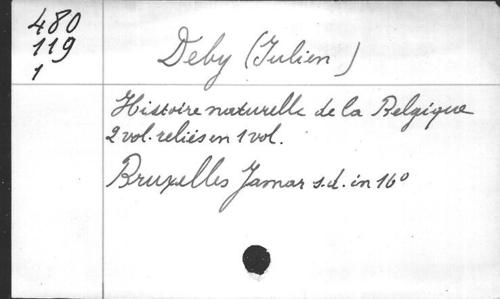 480
119
1
Deby (Julien)
Histoire naturelle de la Belgique
2 vol. reliés en 1 vol.
Bruxelles Jamar s.d. in 16°